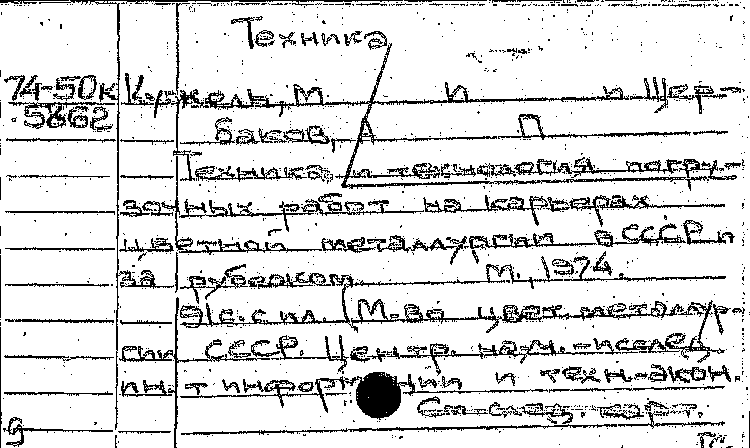 Техника
74-50к Кужель, М И и Щер-
5862 баков, А П
Техника и технология погру-
зочных работ на карьерах
цветной металлургии в СССР и
за рубежом М., 1974.
91с. с ил. (М-во цвет. металлур-
гии СССР. Центр. науч.-исслед.
ин-т информации и техн.-экон.
См след. карт.
9